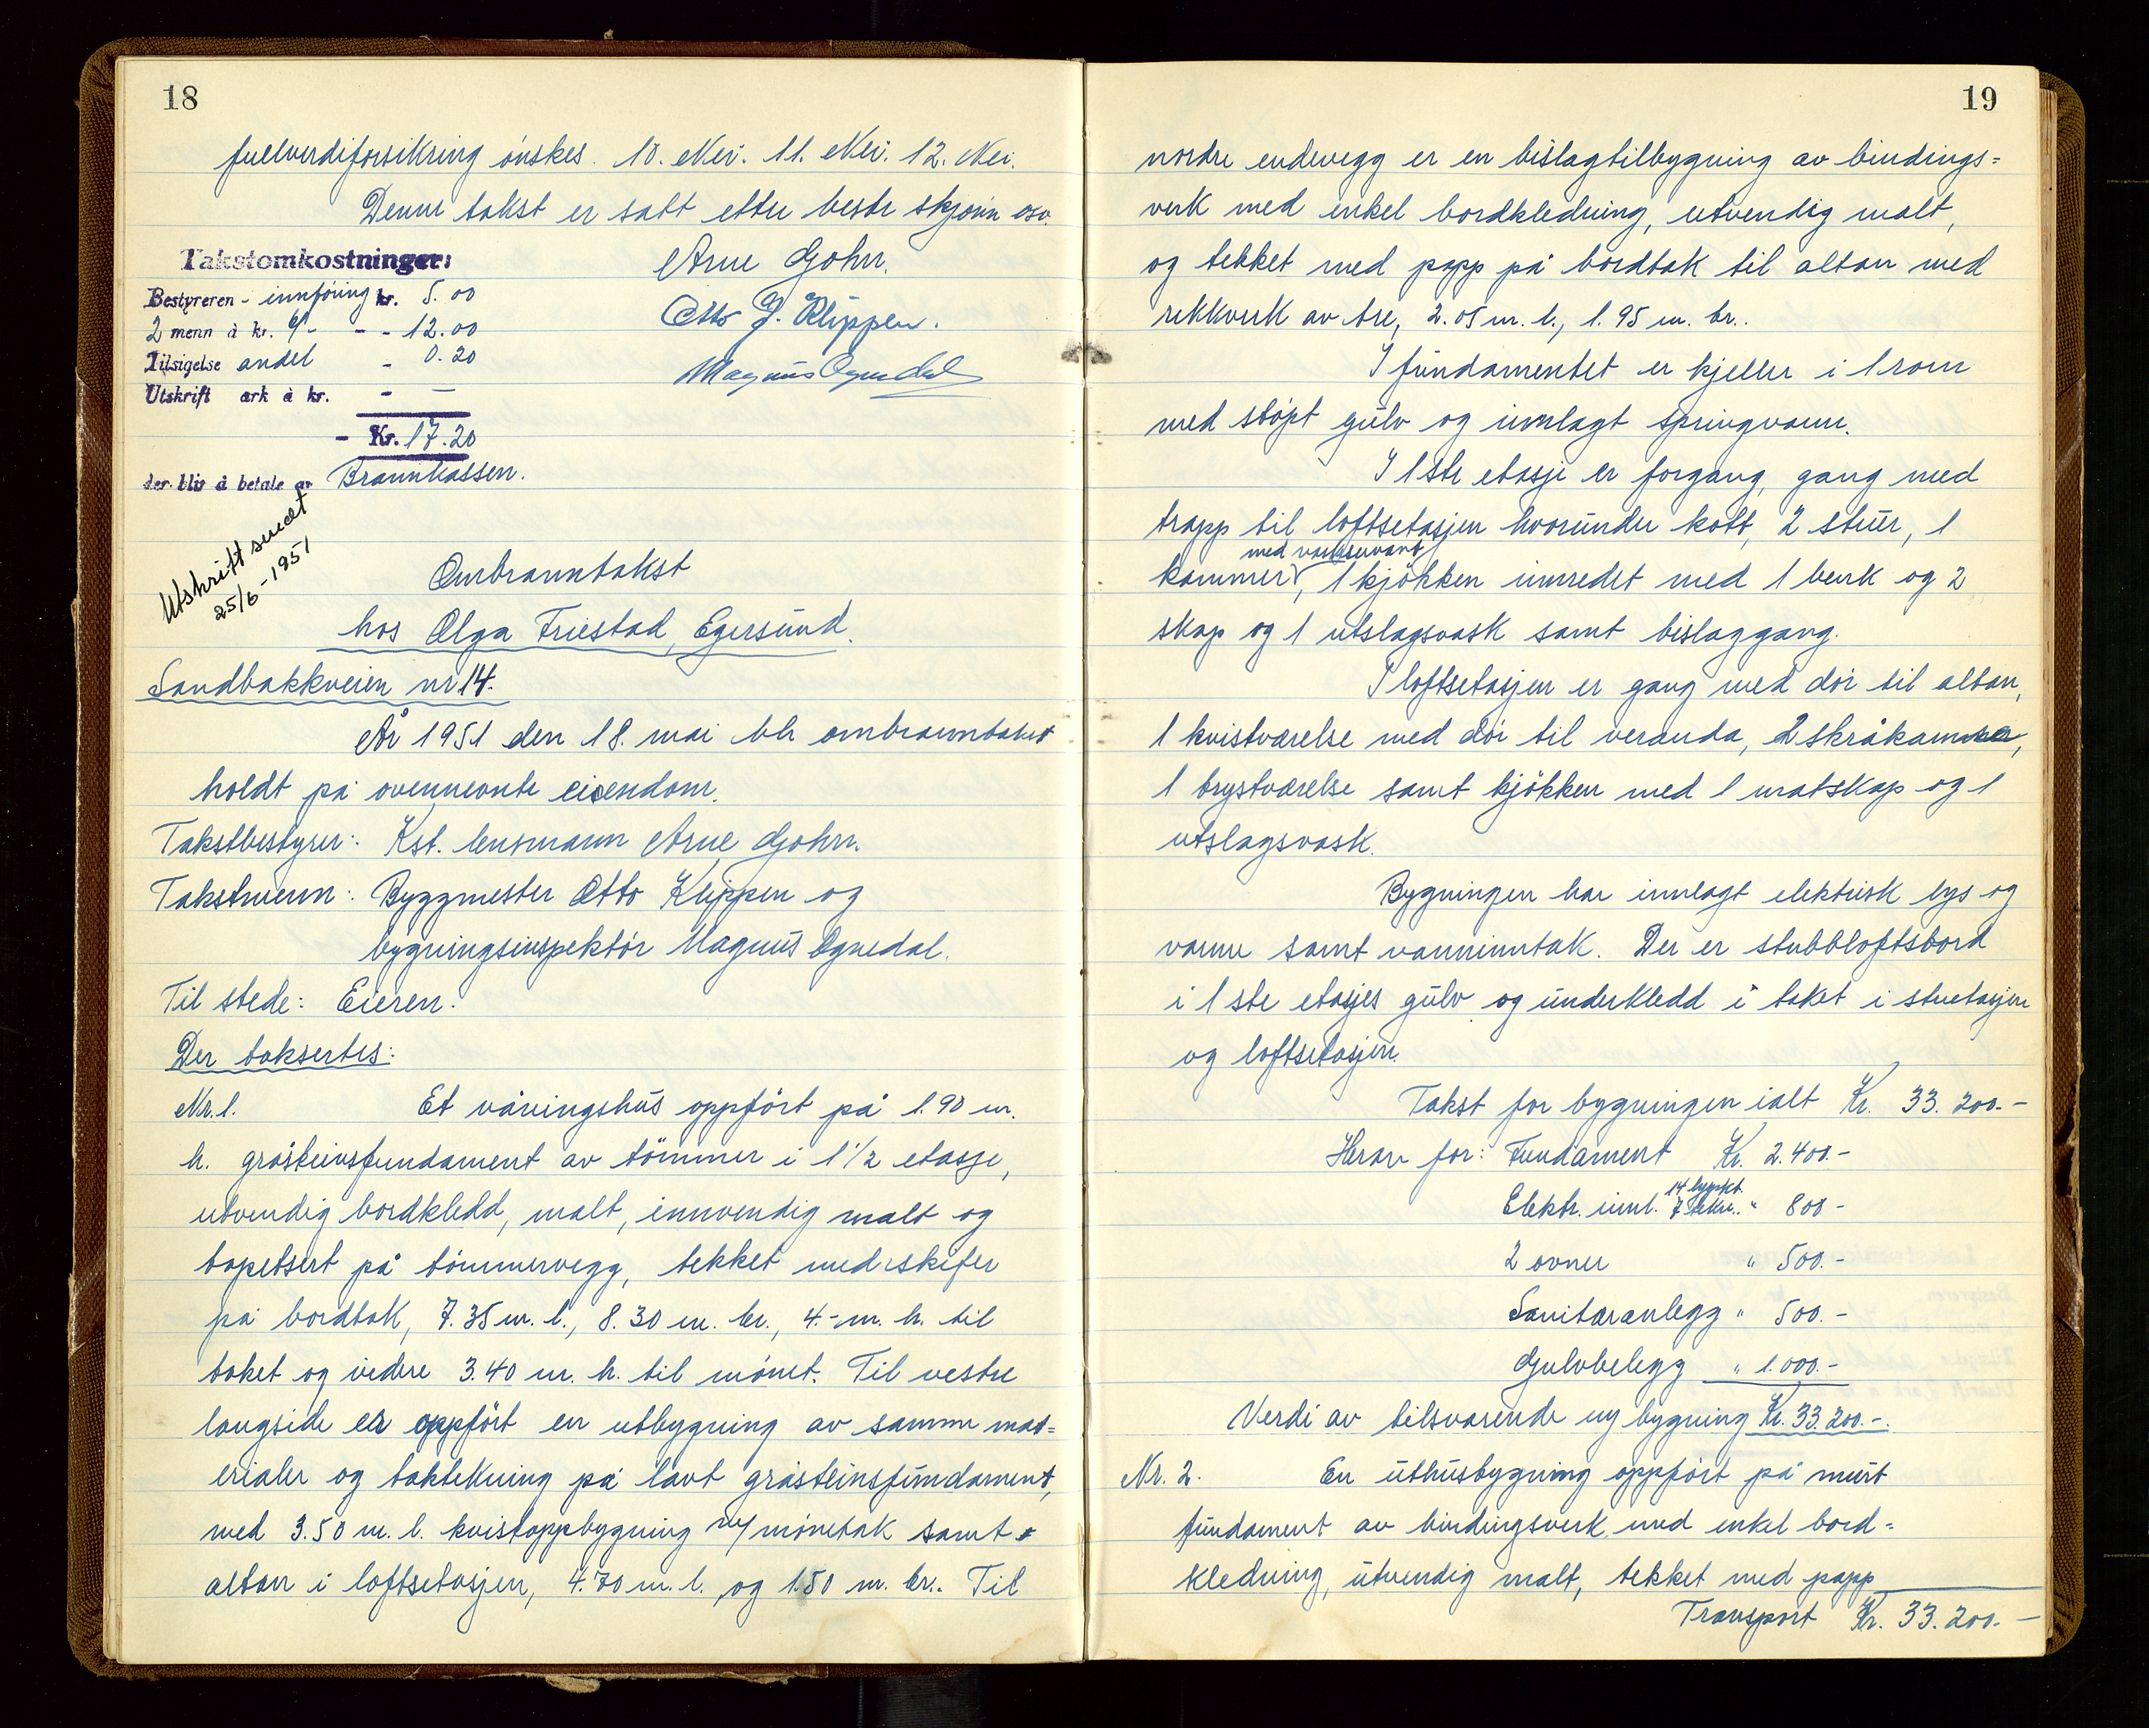 18
fullverdiforsikring ønskes. 10. Nei. 11. Nei. 12. Nei.
Denne takst er satt etter beste skjønn osv.
Takstomkostninger:
Bestyreren - innføring kr. 5.00
2 menn à kr. 6/- - - 12.00
Tilsigelse andel - 0.20
Utskrift ark à kr. - —
- Kr. 17.20
der blir å betale av Brannkassen.
Arne Gjohn.
Otto J. Klippen.
Magnus Ognedal
Utskrift sendt
25/6-1951
Ombranntakst
hos Olga Friestad, Egersund.
Sandbakkveien nr 14.
År 1951 den 18. mai ble ombranntakst
holdt på ovennevnte eiendom.
Takstbestyrer: Kst. lensmann Arne Gjohn.
Takstmenn: Byggmester Otto Klippen og
bygningsinspektør Magnus Ognedal.
Til stede: Eieren.
Der taksertes:
Nr. 1. Et våningshus oppført på 1.90 m.
h. gråsteinsfundament av tømmer i 1 1/2 etasje,
utvendig bordkledd, malt, innvendig malt og
tapetsert på tømmervegg, tekket med skifer
på bordtak, 7.35 m. l., 8.30 m. br., 4.- m. h. til
taket og videre 3.40 m. h. til mønet. Til vestre
langside er oppført en utbygning av samme mat=
erialer og taktekning på lavt gråsteinsfundament,
med 3.50 m. l. kvistoppbygning m/mønetak samt
altan i loftsetasjen, 4.70 m. l., og 1.50 m. br.. Til
19
nordre endevegg er en bislagtilbygning av bindings=
verk med enkel bordkledning, utvendig malt,
og tekket med papp på bordtak til altan med
rekkverk av tre, 2.05 m. l., 1.95 m. br..
I fundamentet er kjeller i 1 rom
med støpt gulv og innlagt springvann.
I 1ste etasje er forgang, gang med
trapp til loftsetasjen hvorunder kott, 2 stuer, 1
med vaskservant
kammer, 1 kjøkken innredet med 1 benk og 2
skap og 1 utslagsvask samt bislaggang.
I loftsetasjen er gang med dør til altan,
1 kvistværelse med dør til veranda, 2 skråkammer,
1 brystværelse samt kjøkken med 1 matskap og 1
utslagsvask.
Bygningen har innlagt elektrisk lys og
varme samt vanninntak. Der er stubbloftsbord
i 1ste etasjes gulv og underkledd i taket i stuetasjen
og loftsetasjen.
Takst for bygningen ialt Kr. 33.200.-
Herav for: Fundament Kr. 2.400.-
14 lyspkt.
Elektr. innl. 7 stikk.. " 800-
2 ovner " 500.-
Sanitæranlegg " 500.-
Gulvbelegg " 1.000.-
Verdi av tilsvarende ny bygning Kr. 33.200.-.
Nr. 2. En uthusbygning oppført på murt
fundament av bindingsverk med enkel bord=
kledning, utvendig malt, tekket med papp
Transport Kr. 33.200.-